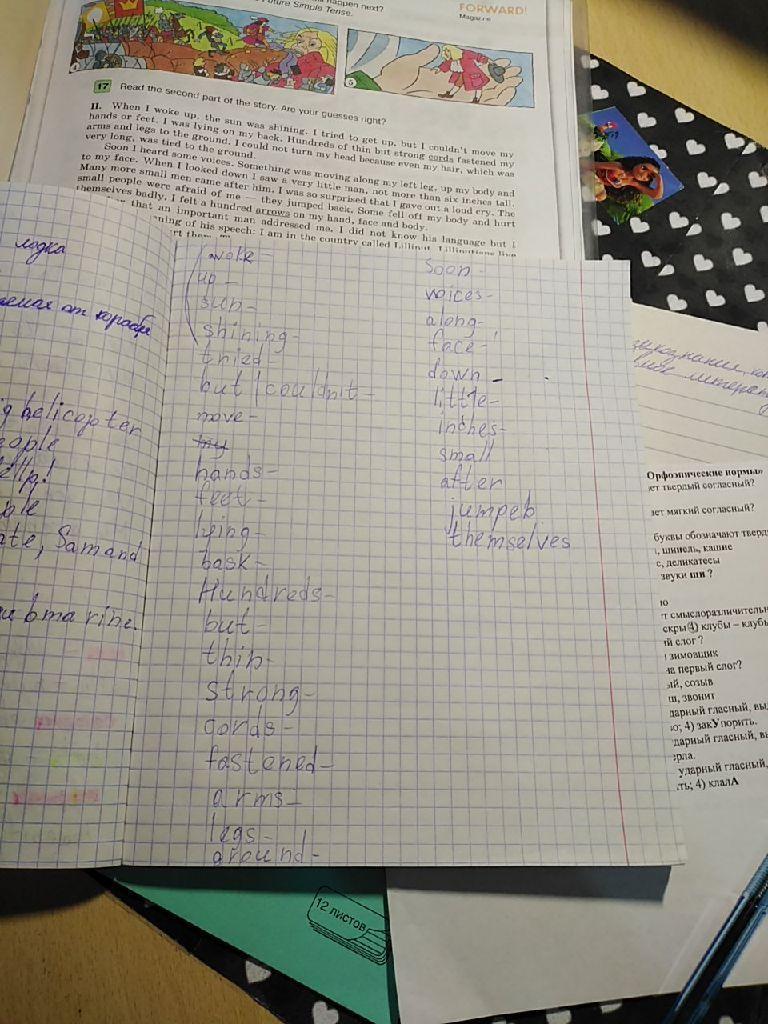 happen next?
Future Simple Tense.
FORWARD!
Magazine
17 Read the second part of the story. Are your guesses right?
II. When I woke up, the sun was shining. I tried to get up, but I couldn't move my
hands or feet. I was lying on my back. Hundreds of thin but strong cords fastened my
arms and legs to the ground. I could not turn my head because even my hair, which was
very long, was tied to the ground.
Soon I heard some voices. Something was moving along my left leg, up my body and
to my face. When I looked down I saw a very little man, not more than six inches tall.
Many more small men came after him. I was so surprised that I gave out a loud cry. The
small people were afraid of me — they jumped back. Some fell off my body and hurt
themselves badly. I felt a hundred arrows on my hand, face and body.
that an important man addressed me. I did not know his language but I
of his speech: I am in the country called Lilliput. Lilliputians live
лодка
от корабля
helicopter
Sam and
woke -
up -
sun -
shining -
tried -
but I couldn't -
move -
my
hands -
feet -
lying -
bask -
Hundreds -
but -
thin -
strong -
cords -
fastened -
arms -
legs -
ground -
Soon -
voices -
along -
face -
down -
little -
inches -
small
after
jumpeb
themselves
Орфоэпические нормы»
ет твердый согласный?
ет мягкий согласный?
буквы обозначают тверд
, шинель, кашне
с, деликатесы
звуки ши ?
ю
т смыслоразличительн
скры 4) клубы – клубы
й слог?
зимовщик
на первый слог?
ый, созыв
ш, звонит
ударный гласный, вы
но; 4) закУпорить.
ударный гласный, в
ерла.
ударный гласный,
ть; 4) клалА
12 листов